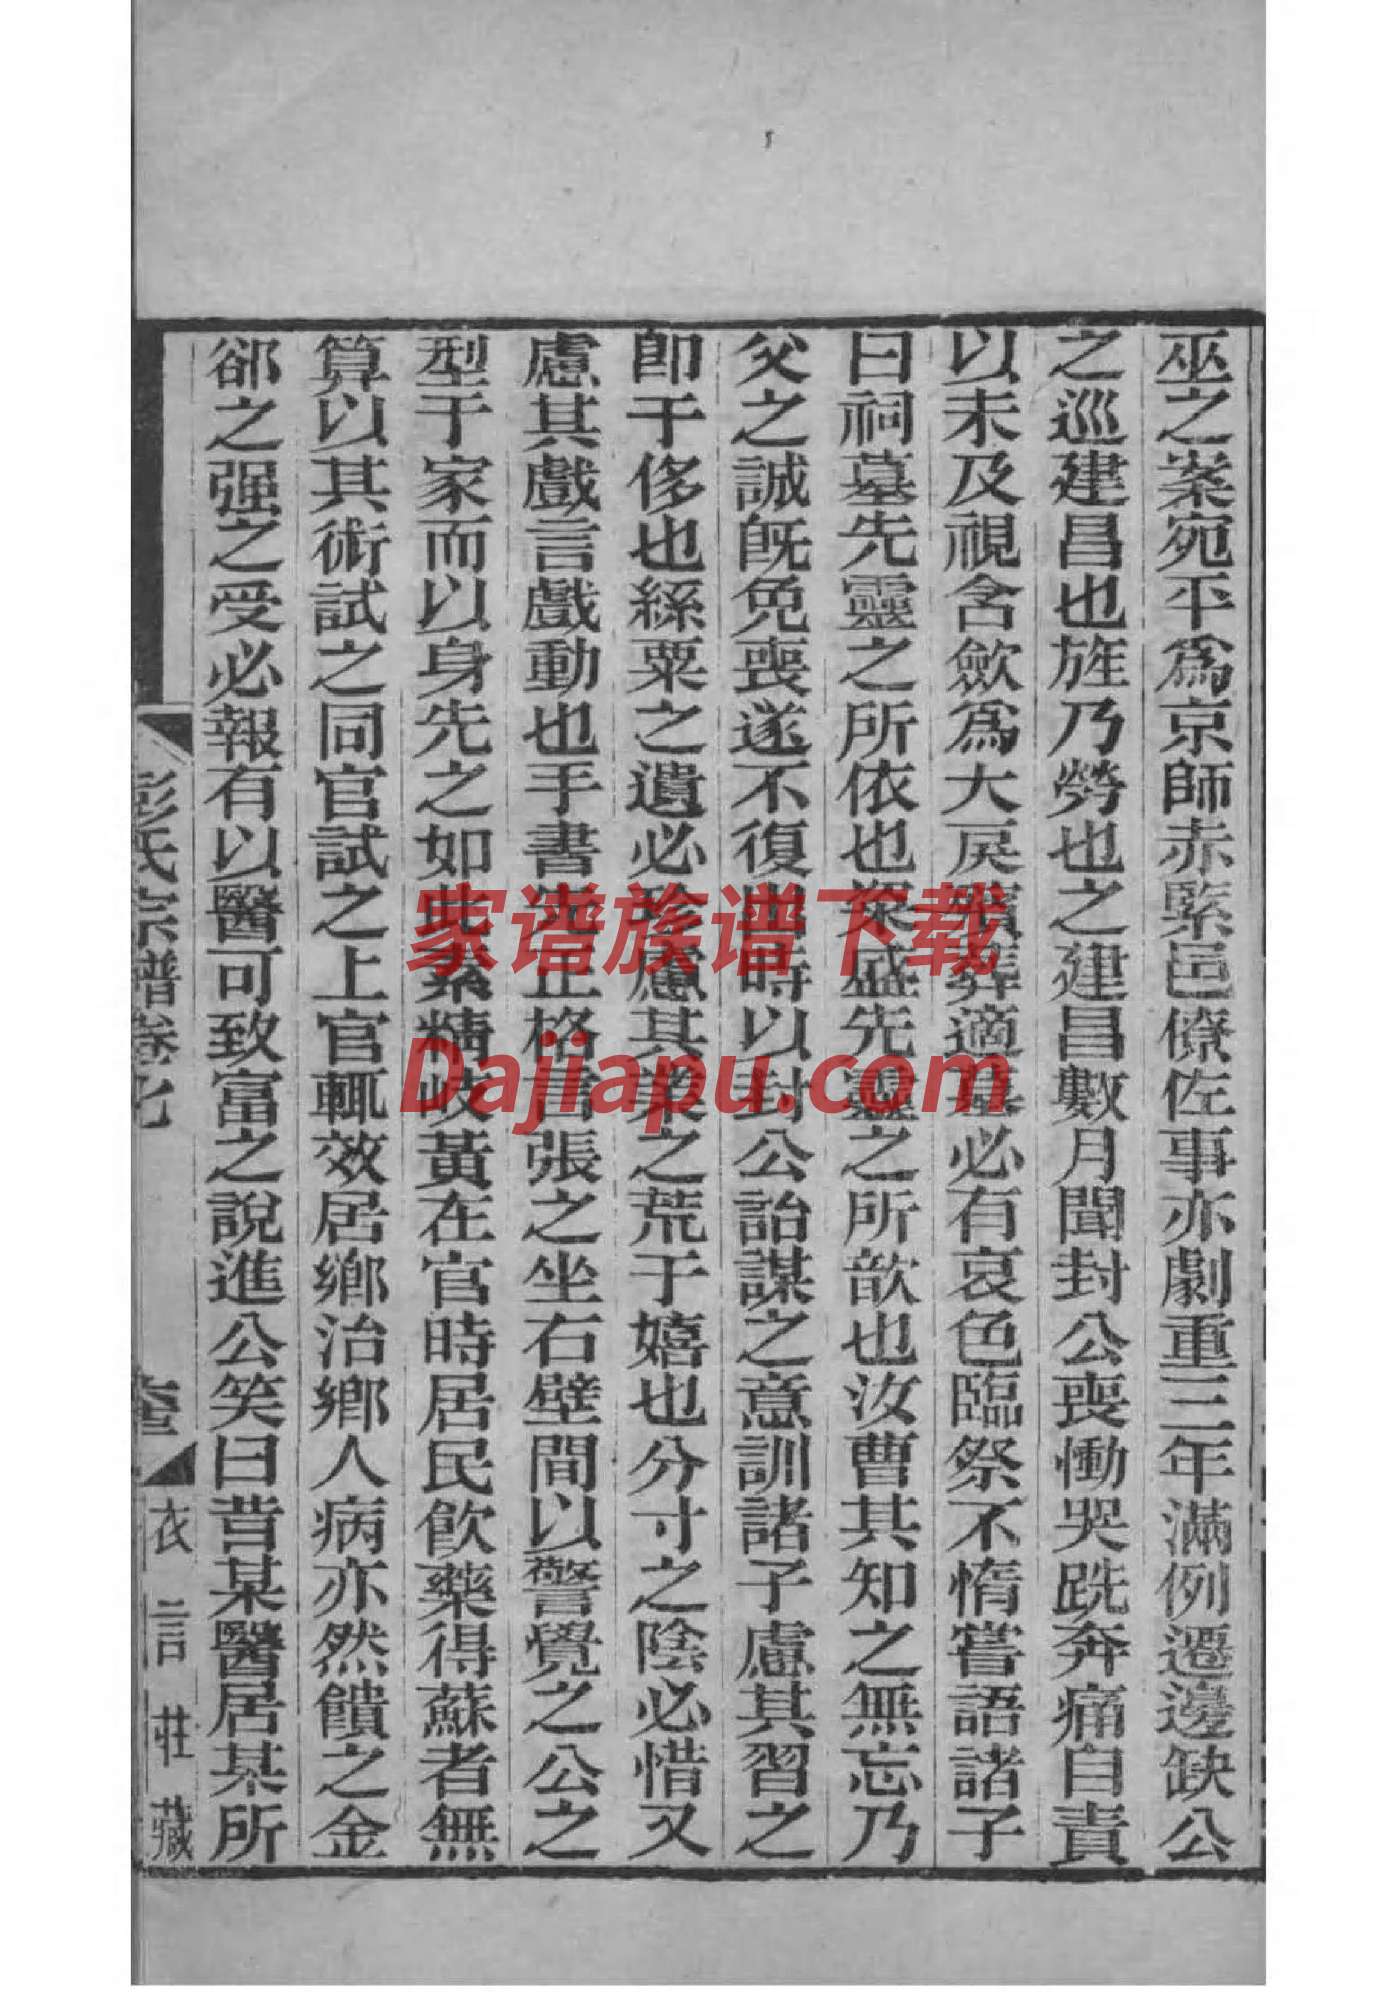 巫之案宛平爲京師赤緊邑僚佐事亦劇重三年滿例遷邊缺公
之巡建昌也旌乃勞也之建昌數月聞封公喪慟哭跣奔痛自責
以未及視含歛爲大戾殯葬適墓必有哀色臨祭不惰嘗語諸子
曰祠墓先靈之所依也粢盛先靈之所歆也汝曹其知之無忘乃
父之誠旣免喪遂不復出時以封公詒謀之意訓諸子慮其習之
卽于侈也絲粟之遺必珍慮其業之荒于嬉也分寸之陰必惜又
慮其戲言戲動也手書先正格言張之坐右壁間以警覺之公之
型于家而以身先之如此素精岐黃在官時居民飮藥得蘇者無
算以其術試之同官試之上官輒效居鄉治鄉人病亦然饋之金
郤之强之受必報有以醫可致富之說進公笑曰昔某醫居某所
彭氏宗譜卷七
衣言莊藏
家谱族谱下载
Dajiapu.com